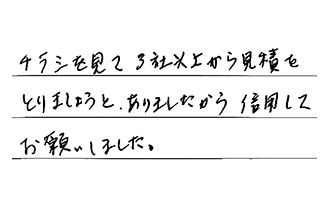 チラシを見て3社以上から見積を
とりましょうと、ありましたから 信用して
お願いしました。